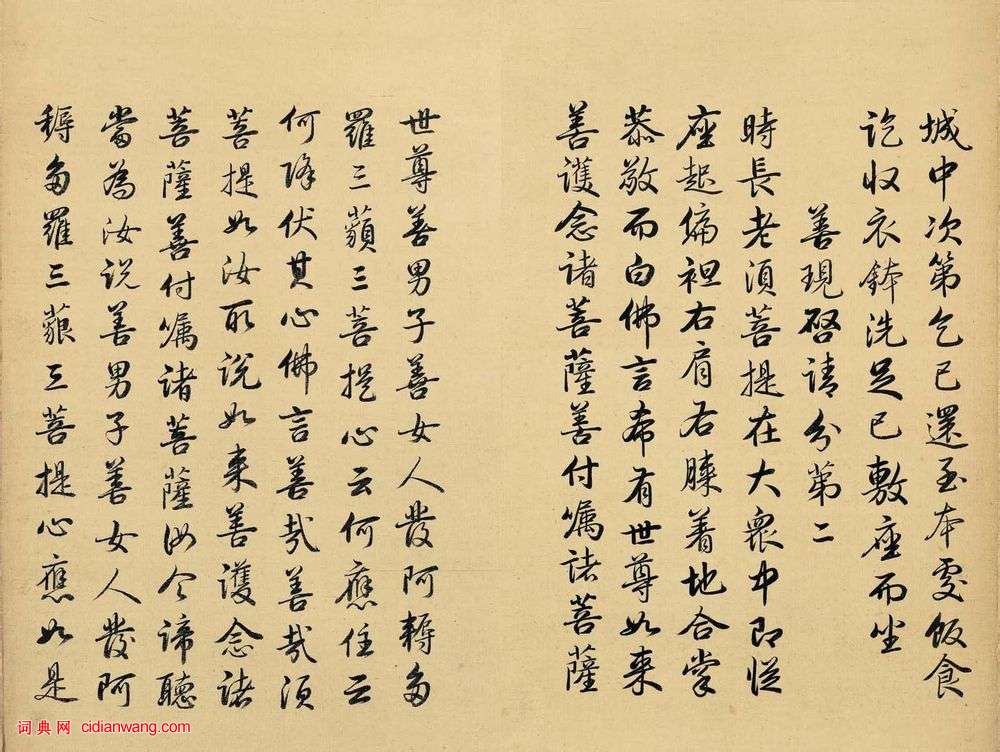 城中次第乞已還至本處飯食
訖收衣鉢洗足已敷座而坐
善現啓請分第二
時長老須菩提在大衆中即從
座起偏袒右肩右膝着地合掌
恭敬而白佛言希有世尊如来
善護念諸菩薩善付囑諸菩薩
世尊善男子善女人發阿耨多
羅三藐三菩提心云何應住云
何降伏其心佛言善哉善哉須
菩提如汝所説如来善護念諸
菩薩善付囑諸菩薩汝今諦聽
當為汝説善男子善女人發阿
耨多羅三藐三菩提心應如是
词典网 cidianwang.com